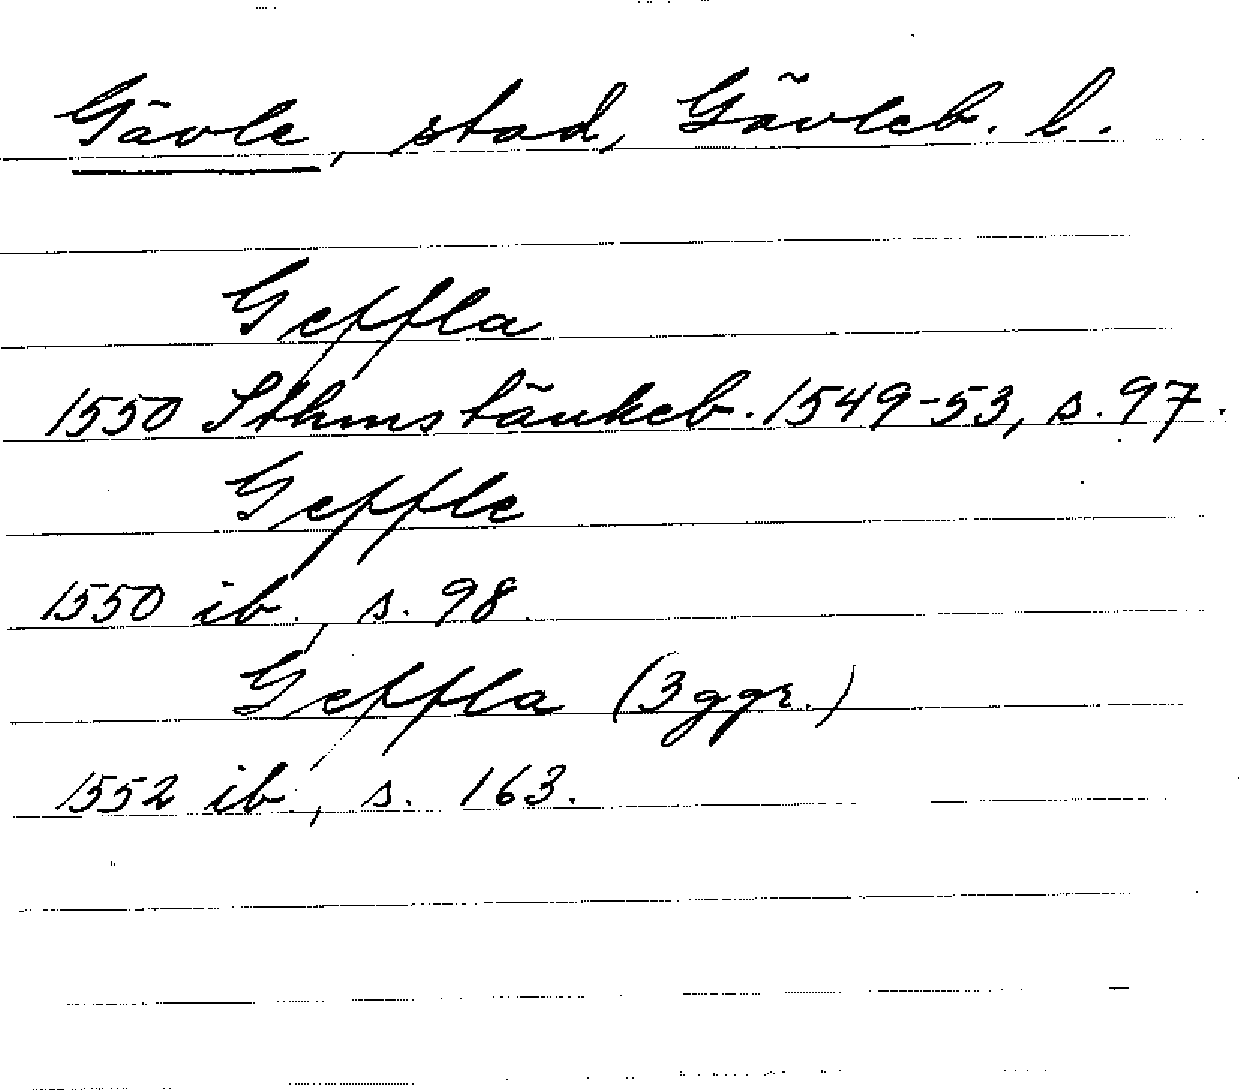 Gävle, stad, Gävleb. l.
Geffla
1550 Sthms tänkeb. 1549-53, s. 97.
Geffle
1550 ib., s. 98.
Geffla (3 ggr.)
1552 ib., s. 163.